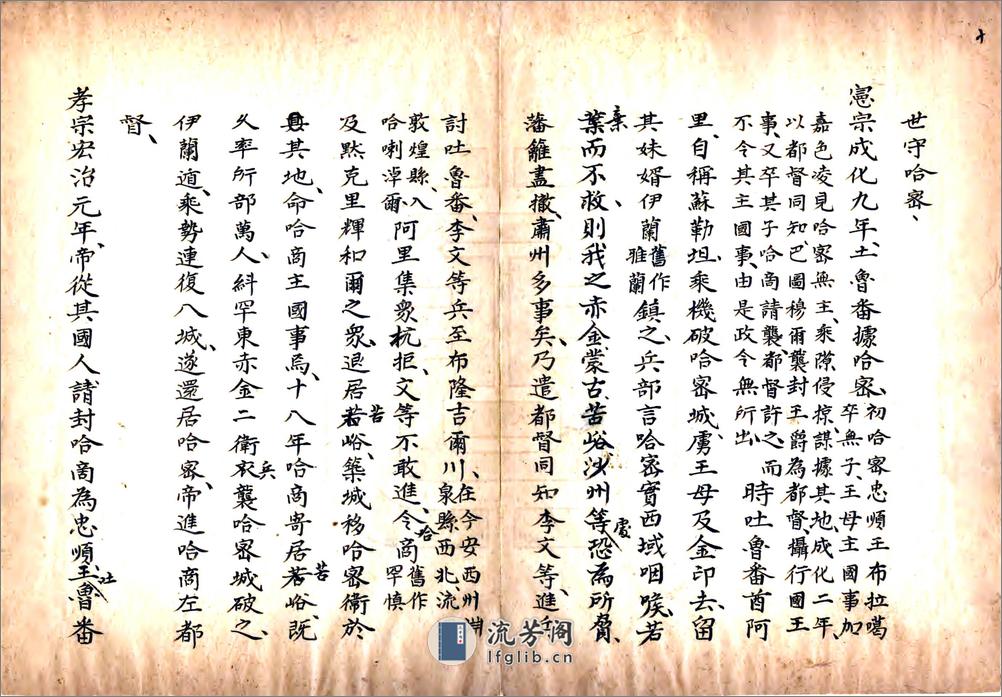 十
世守哈密、
憲宗成化九年、土魯番據哈密、初哈密忠順王布拉噶
卒無子、王母主國事、加
嘉色凌見哈密無主、乘隙侵掠、謀據其地、成化二年、
以都督同知巴圖穆爾襲封王爵為都督、攝行國王
事、又卒其子哈商請襲都督許之、而
不令其主國事、由是政令無所出、時吐魯番酋阿
里、自稱蘇勒坦、乘機破哈密城、虜王母及金印去、留
其妹婿伊蘭舊作雅蘭鎮之、兵部言哈密實西域咽喉、若
棄而不救、則我之赤金蒙古苦峪沙州等處恐為所脅、
藩籬盡撤、肅州多事矣、乃遣都督同知李文等、進兵
討吐魯番、李文等兵至布隆吉爾川、在今安西州淵
泉縣西北流
敦煌縣、入
哈喇淖爾、阿里集衆抗拒、文等不敢進、令哈商舊作罕慎
及黙克里輝和爾之衆、退居苦峪、築城移哈密衛於
其地、命哈商主國事焉、十八年哈商寄居苦峪、既
久率所部萬人、糾罕東赤金二衛兵襲哈密城破之、
伊蘭遁、乘勢連復八城、遂還居哈密、帝進哈商左都
督、
孝宗宏治元年、帝從其國人請封哈商為忠順王、吐魯番
流芳阁
lfglib.cn